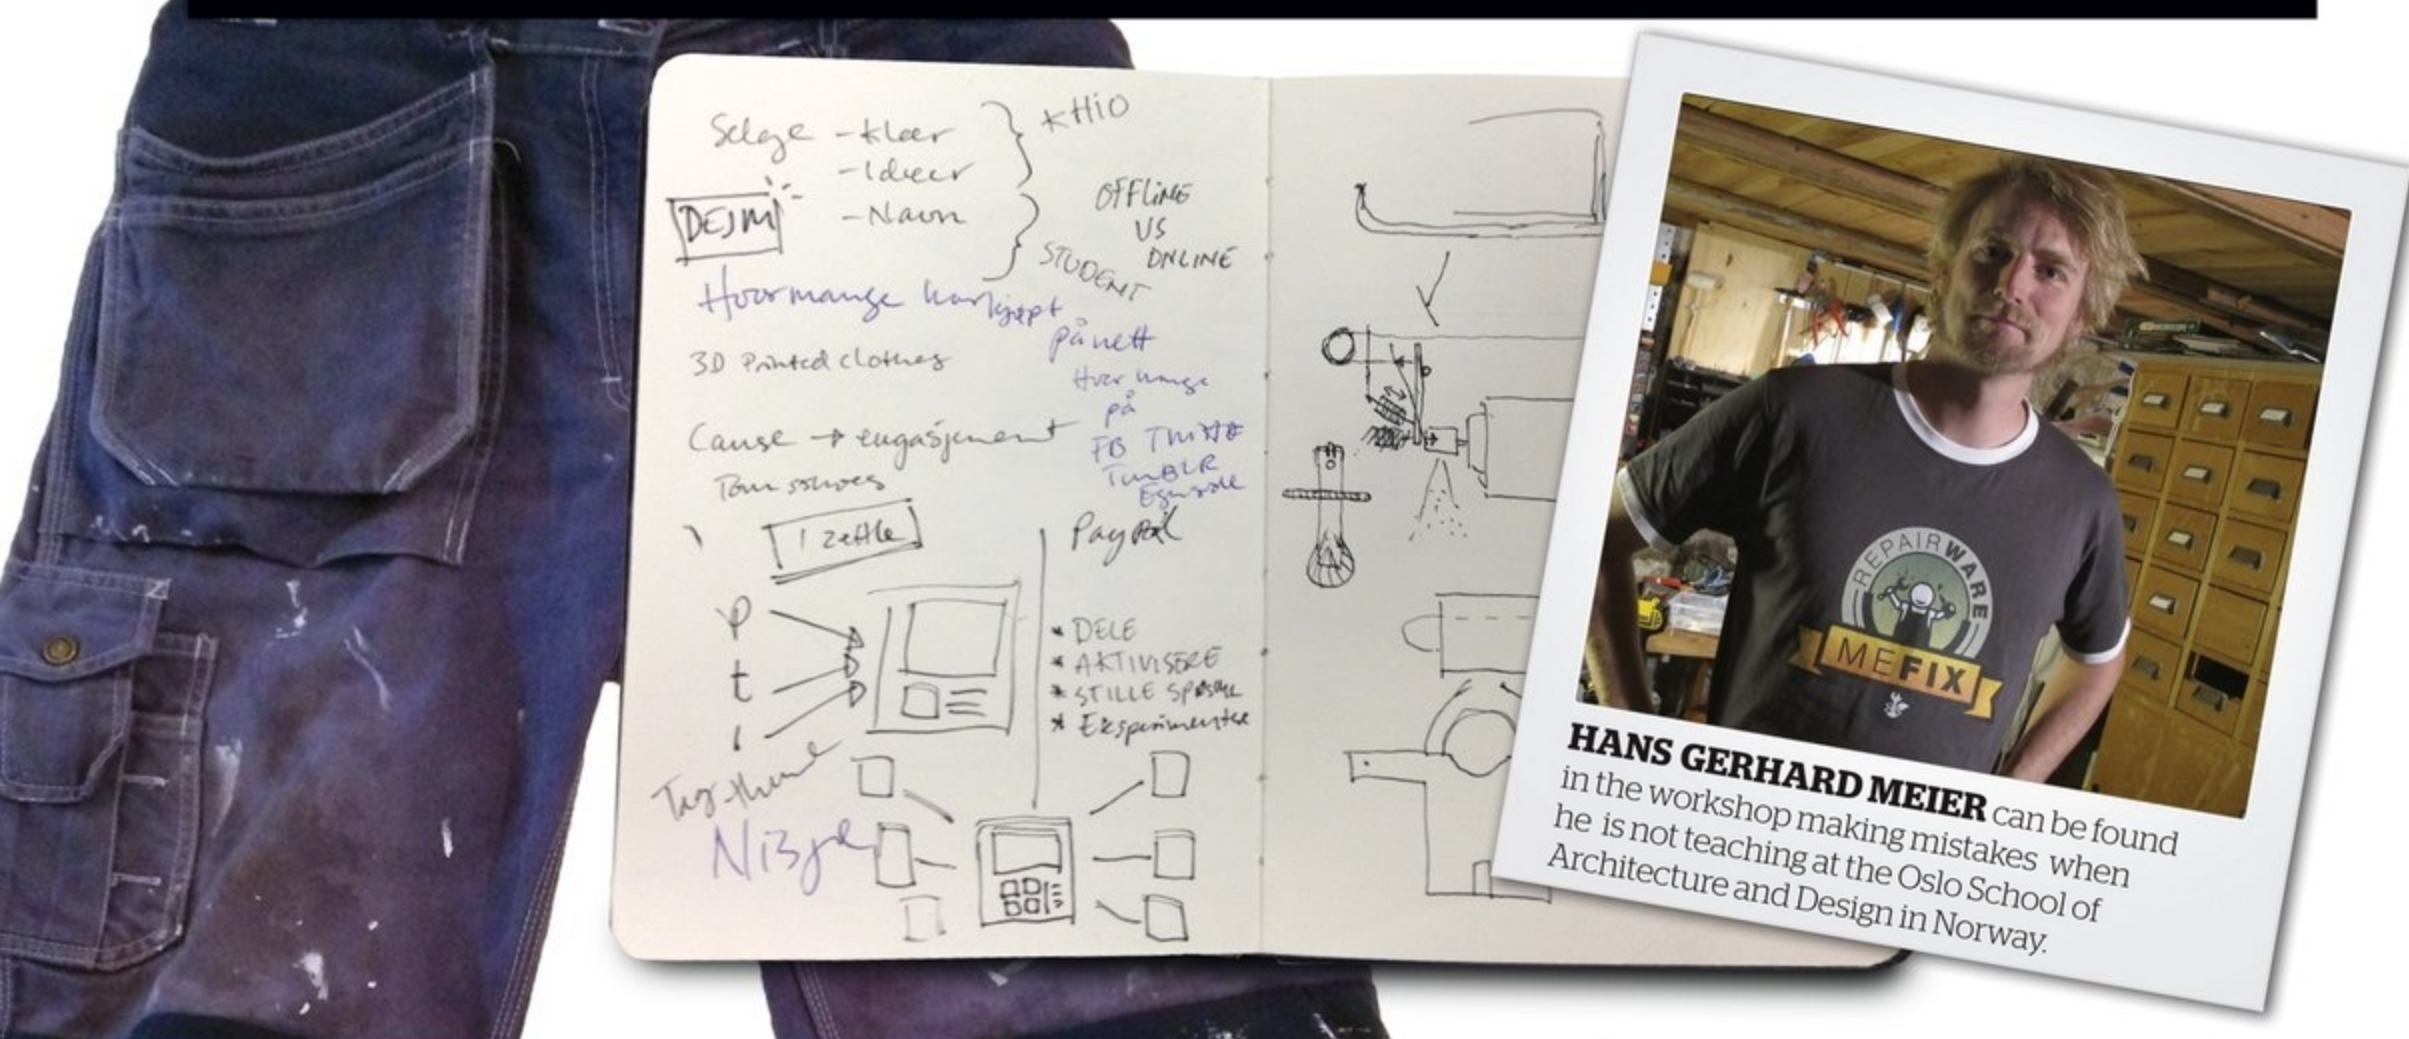 Selge - klær
- Ideer
- Navn
KHIO
STUDENT
OFFLINE
VS
ONLINE
Hvor mange har kjøpt
på nett
3D Printed clothes
Hvor mange
på
FB
TUMBLR
Cause → engasjement
Toms shoes
I zettle
Paypal
p
t
i
* DELE
* AKTIVISERE
* STILLE
* Eksperimentere
REPAIRWARE
MEFIX
HANS GERHARD MEIER can be found
in the workshop making mistakes when
he is not teaching at the Oslo School of
Architecture and Design in Norway.